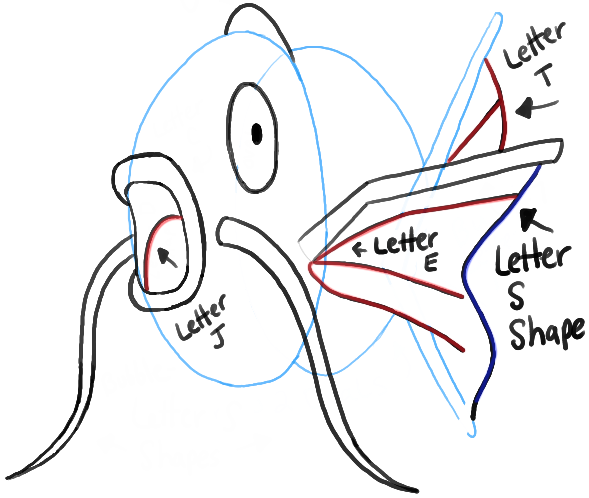 Letter
T
Letter
E
Letter
S
Shape
Letter
J